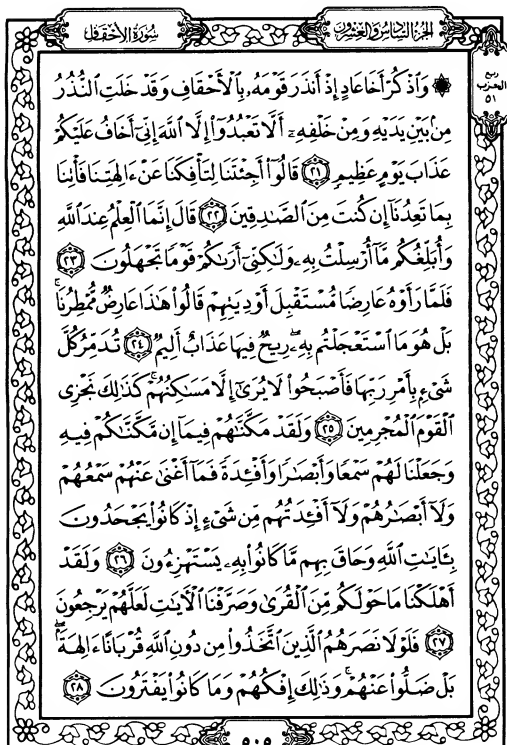 سُورَةُ الأَحْقَافِ
الجُزْءُ السَّادِسُ وَالعِشْرُونَ
ربع
الحزب
٥١
۞ وَٱذْكُرْ أَخَا عَادٍ إِذْ أَنذَرَ قَوْمَهُۥ بِٱلْأَحْقَافِ وَقَدْ خَلَتِ ٱلنُّذُرُ
مِنۢ بَيْنِ يَدَيْهِ وَمِنْ خَلْفِهِۦٓ أَلَّا تَعْبُدُوٓا۟ إِلَّا ٱللَّهَ إِنِّىٓ أَخَافُ عَلَيْكُمْ
عَذَابَ يَوْمٍ عَظِيمٍ ٢١ قَالُوٓا۟ أَجِئْتَنَا لِتَأْفِكَنَا عَنْ ءَالِهَتِنَا فَأْتِنَا
بِمَا تَعِدُنَآ إِن كُنتَ مِنَ ٱلصَّٰدِقِينَ ٢٢ قَالَ إِنَّمَا ٱلْعِلْمُ عِندَ ٱللَّهِ
وَأُبَلِّغُكُم مَّآ أُرْسِلْتُ بِهِۦ وَلَٰكِنِّىٓ أَرَىٰكُمْ قَوْمًا تَجْهَلُونَ ٢٣
فَلَمَّا رَأَوْهُ عَارِضًا مُّسْتَقْبِلَ أَوْدِيَتِهِمْ قَالُوا۟ هَٰذَا عَارِضٌ مُّمْطِرُنَا ۚ
بَلْ هُوَ مَا ٱسْتَعْجَلْتُم بِهِۦ ۖ رِيحٌ فِيهَا عَذَابٌ أَلِيمٌ ٢٤ تُدَمِّرُ كُلَّ
شَىْءٍۭ بِأَمْرِ رَبِّهَا فَأَصْبَحُوا۟ لَا يُرَىٰٓ إِلَّا مَسَٰكِنُهُمْ ۚ كَذَٰلِكَ نَجْزِى
ٱلْقَوْمَ ٱلْمُجْرِمِينَ ٢٥ وَلَقَدْ مَكَّنَّٰهُمْ فِيمَآ إِن مَّكَّنَّٰكُمْ فِيهِ
وَجَعَلْنَا لَهُمْ سَمْعًا وَأَبْصَٰرًا وَأَفْـِٔدَةً فَمَآ أَغْنَىٰ عَنْهُمْ سَمْعُهُمْ
وَلَآ أَبْصَٰرُهُمْ وَلَآ أَفْـِٔدَتُهُم مِّن شَىْءٍ إِذْ كَانُوا۟ يَجْحَدُونَ
بِـَٔايَٰتِ ٱللَّهِ وَحَاقَ بِهِم مَّا كَانُوا۟ بِهِۦ يَسْتَهْزِءُونَ ٢٦ وَلَقَدْ
أَهْلَكْنَا مَا حَوْلَكُم مِّنَ ٱلْقُرَىٰ وَصَرَّفْنَا ٱلْءَايَٰتِ لَعَلَّهُمْ يَرْجِعُونَ
٢٧ فَلَوْلَا نَصَرَهُمُ ٱلَّذِينَ ٱتَّخَذُوا۟ مِن دُونِ ٱللَّهِ قُرْبَانًا ءَالِهَةًۢ ۖ
بَلْ ضَلُّوا۟ عَنْهُمْ ۚ وَذَٰلِكَ إِفْكُهُمْ وَمَا كَانُوا۟ يَفْتَرُونَ ٢٨
٥٠٥